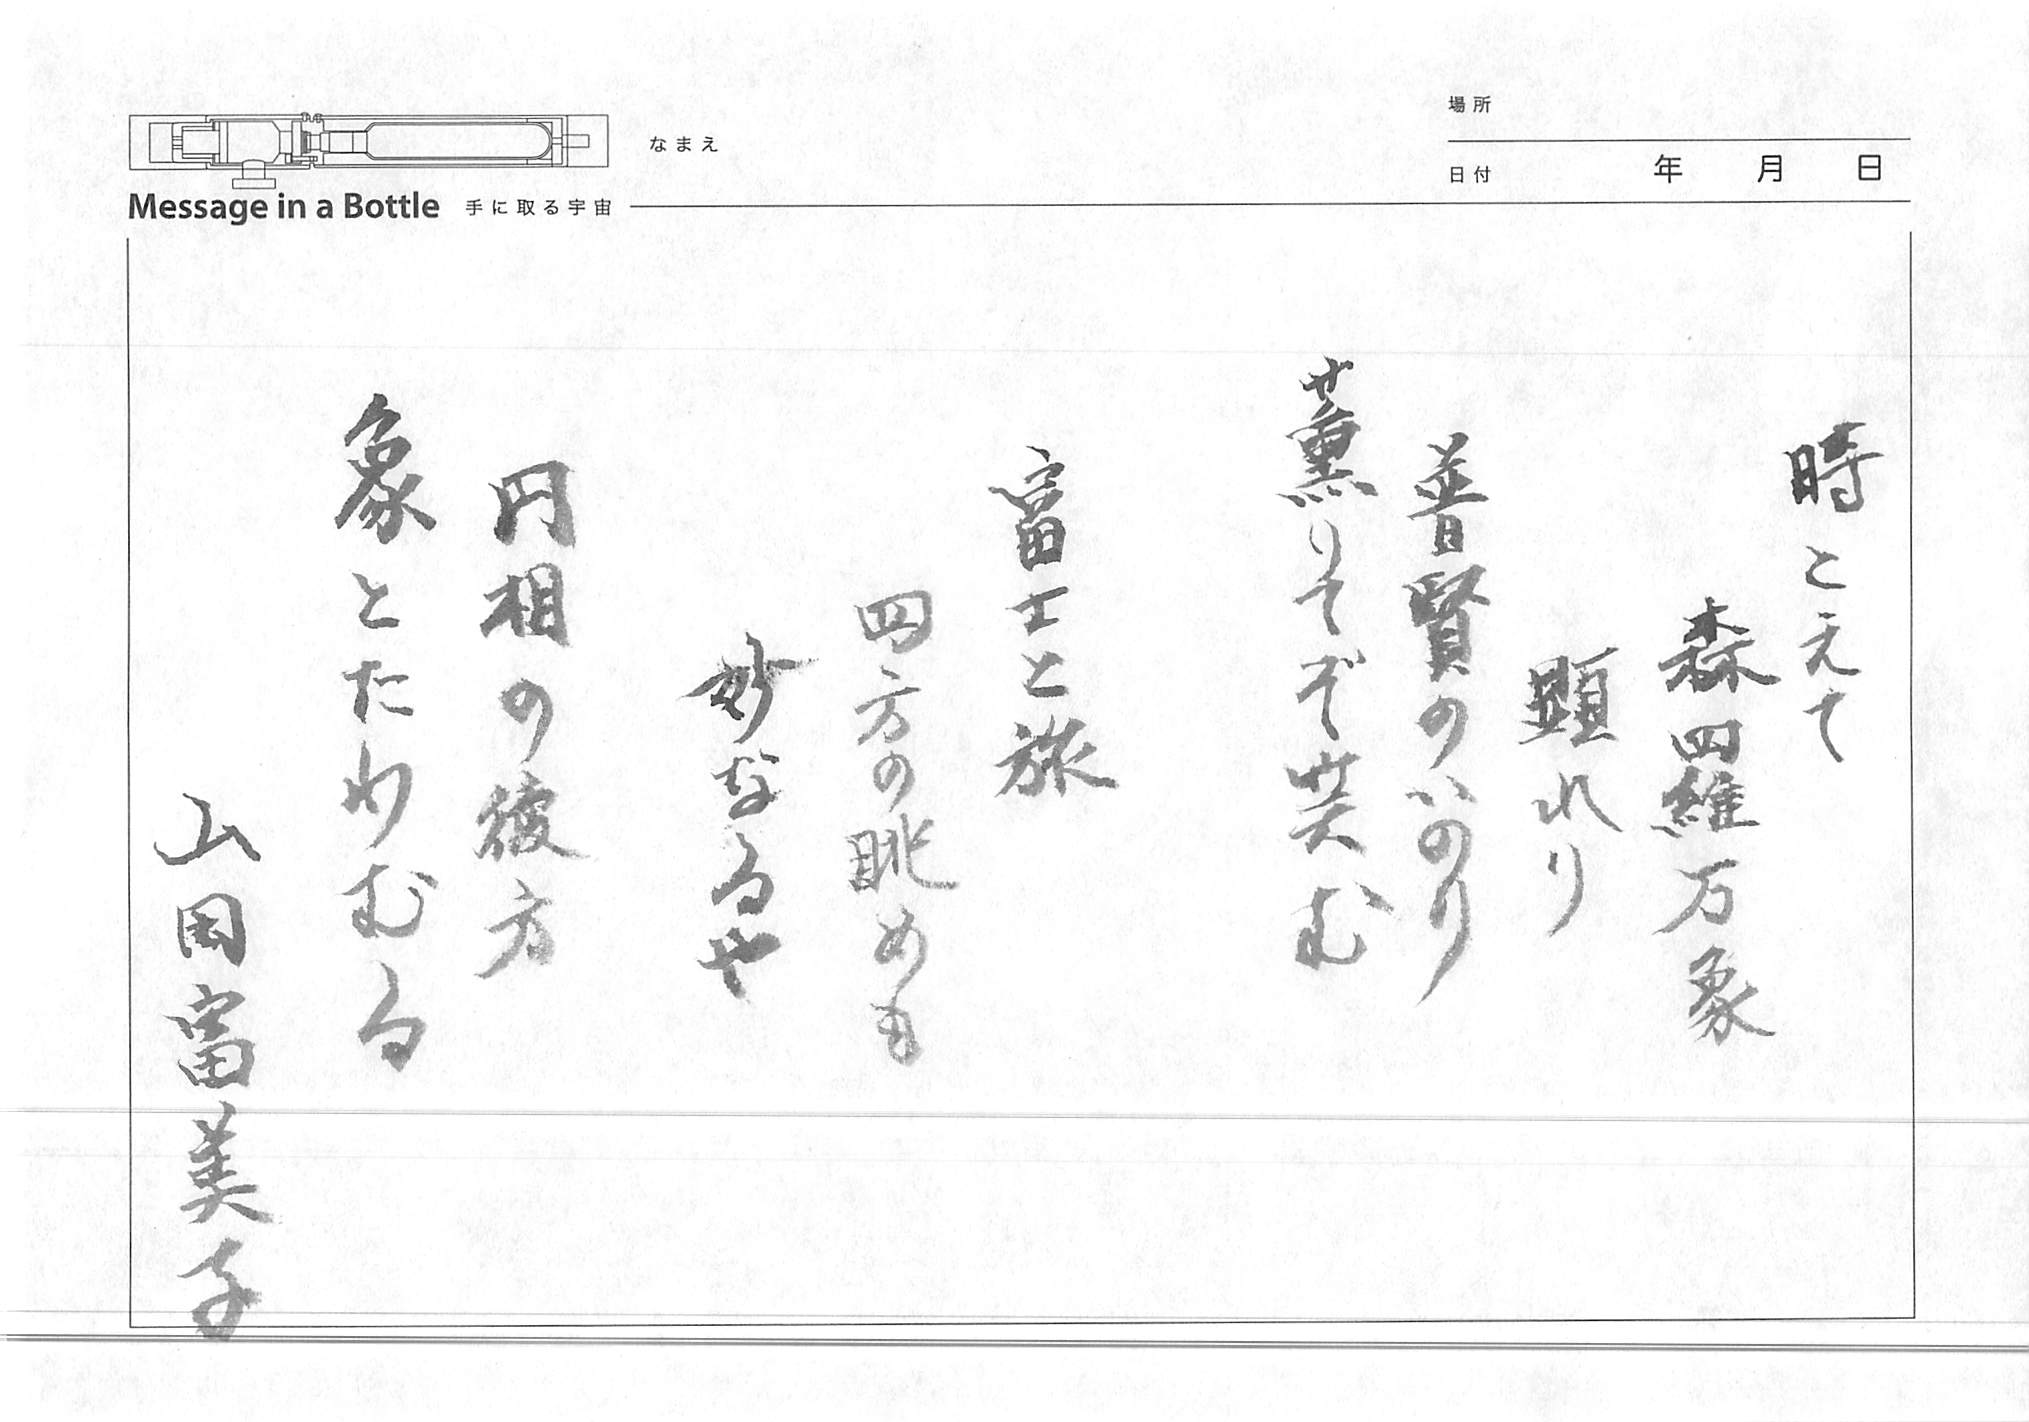 場所
なまえ
日付 年 月 日
Message in a Bottle 手に取る宇宙
時こえて
森羅万象
顕れり
普賢のいのり
薫りてぞ笑む
富士と旅
四方の眺めも
妙なるや
円相の彼方
象とたわむる
山田富美子